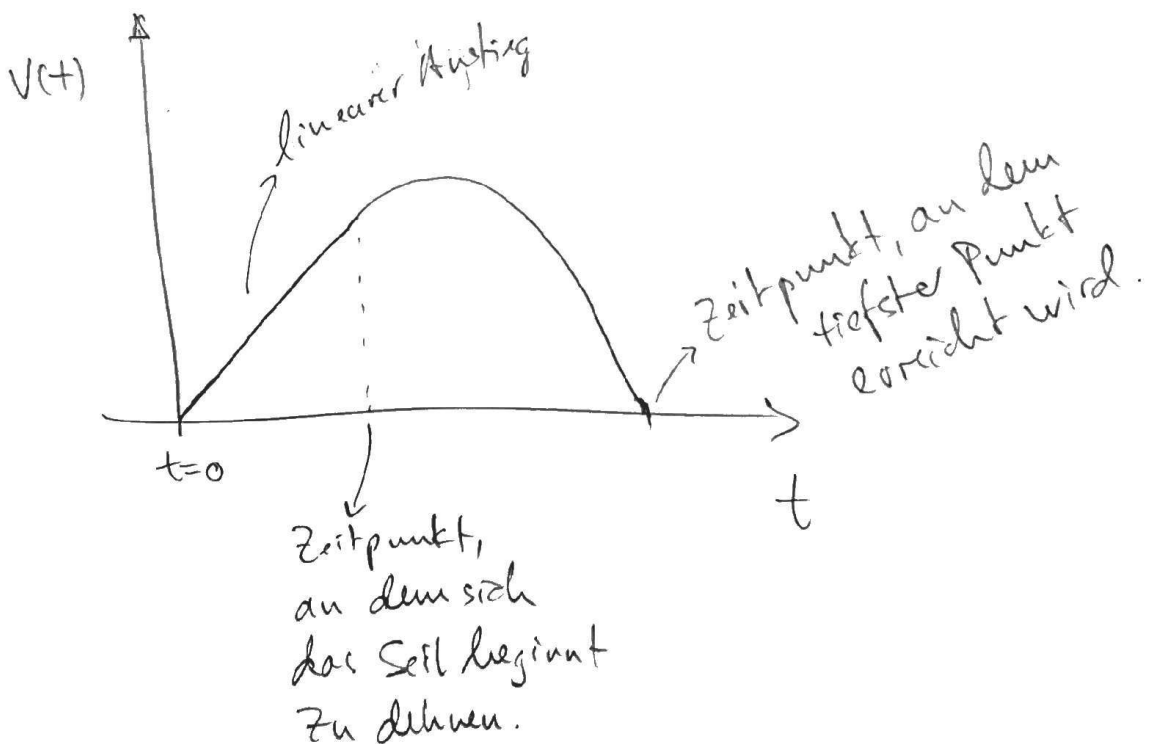 V(t)
linearer Anstieg
Zeitpunkt, an dem
tiefster Punkt
erreicht wird.
t=0
t
Zeitpunkt,
an dem sich
das Seil beginnt
zu dehnen.